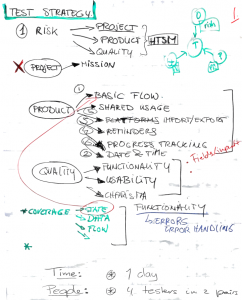 TEST STRATEGY
1
① RISK
PROJECT
PRODUCT
QUALITY
HTSM
PROJECT
MISSION
① BASIC FLOW
PRODUCT
SHARED USAGE
PLATFORMS IMPORT/EXPORT
REMINDERS
PROGRESS TRACKING
② DATE & TIME
FUNCTIONALITY
QUALITY
USABILITY
CHARISMA
* COVERAGE
DATA
FLOW
FUNCTIONALITY
ERRORS
ERROR HANDLING
*
Time: * 1 day
People: * 4 testers in 2 pairs